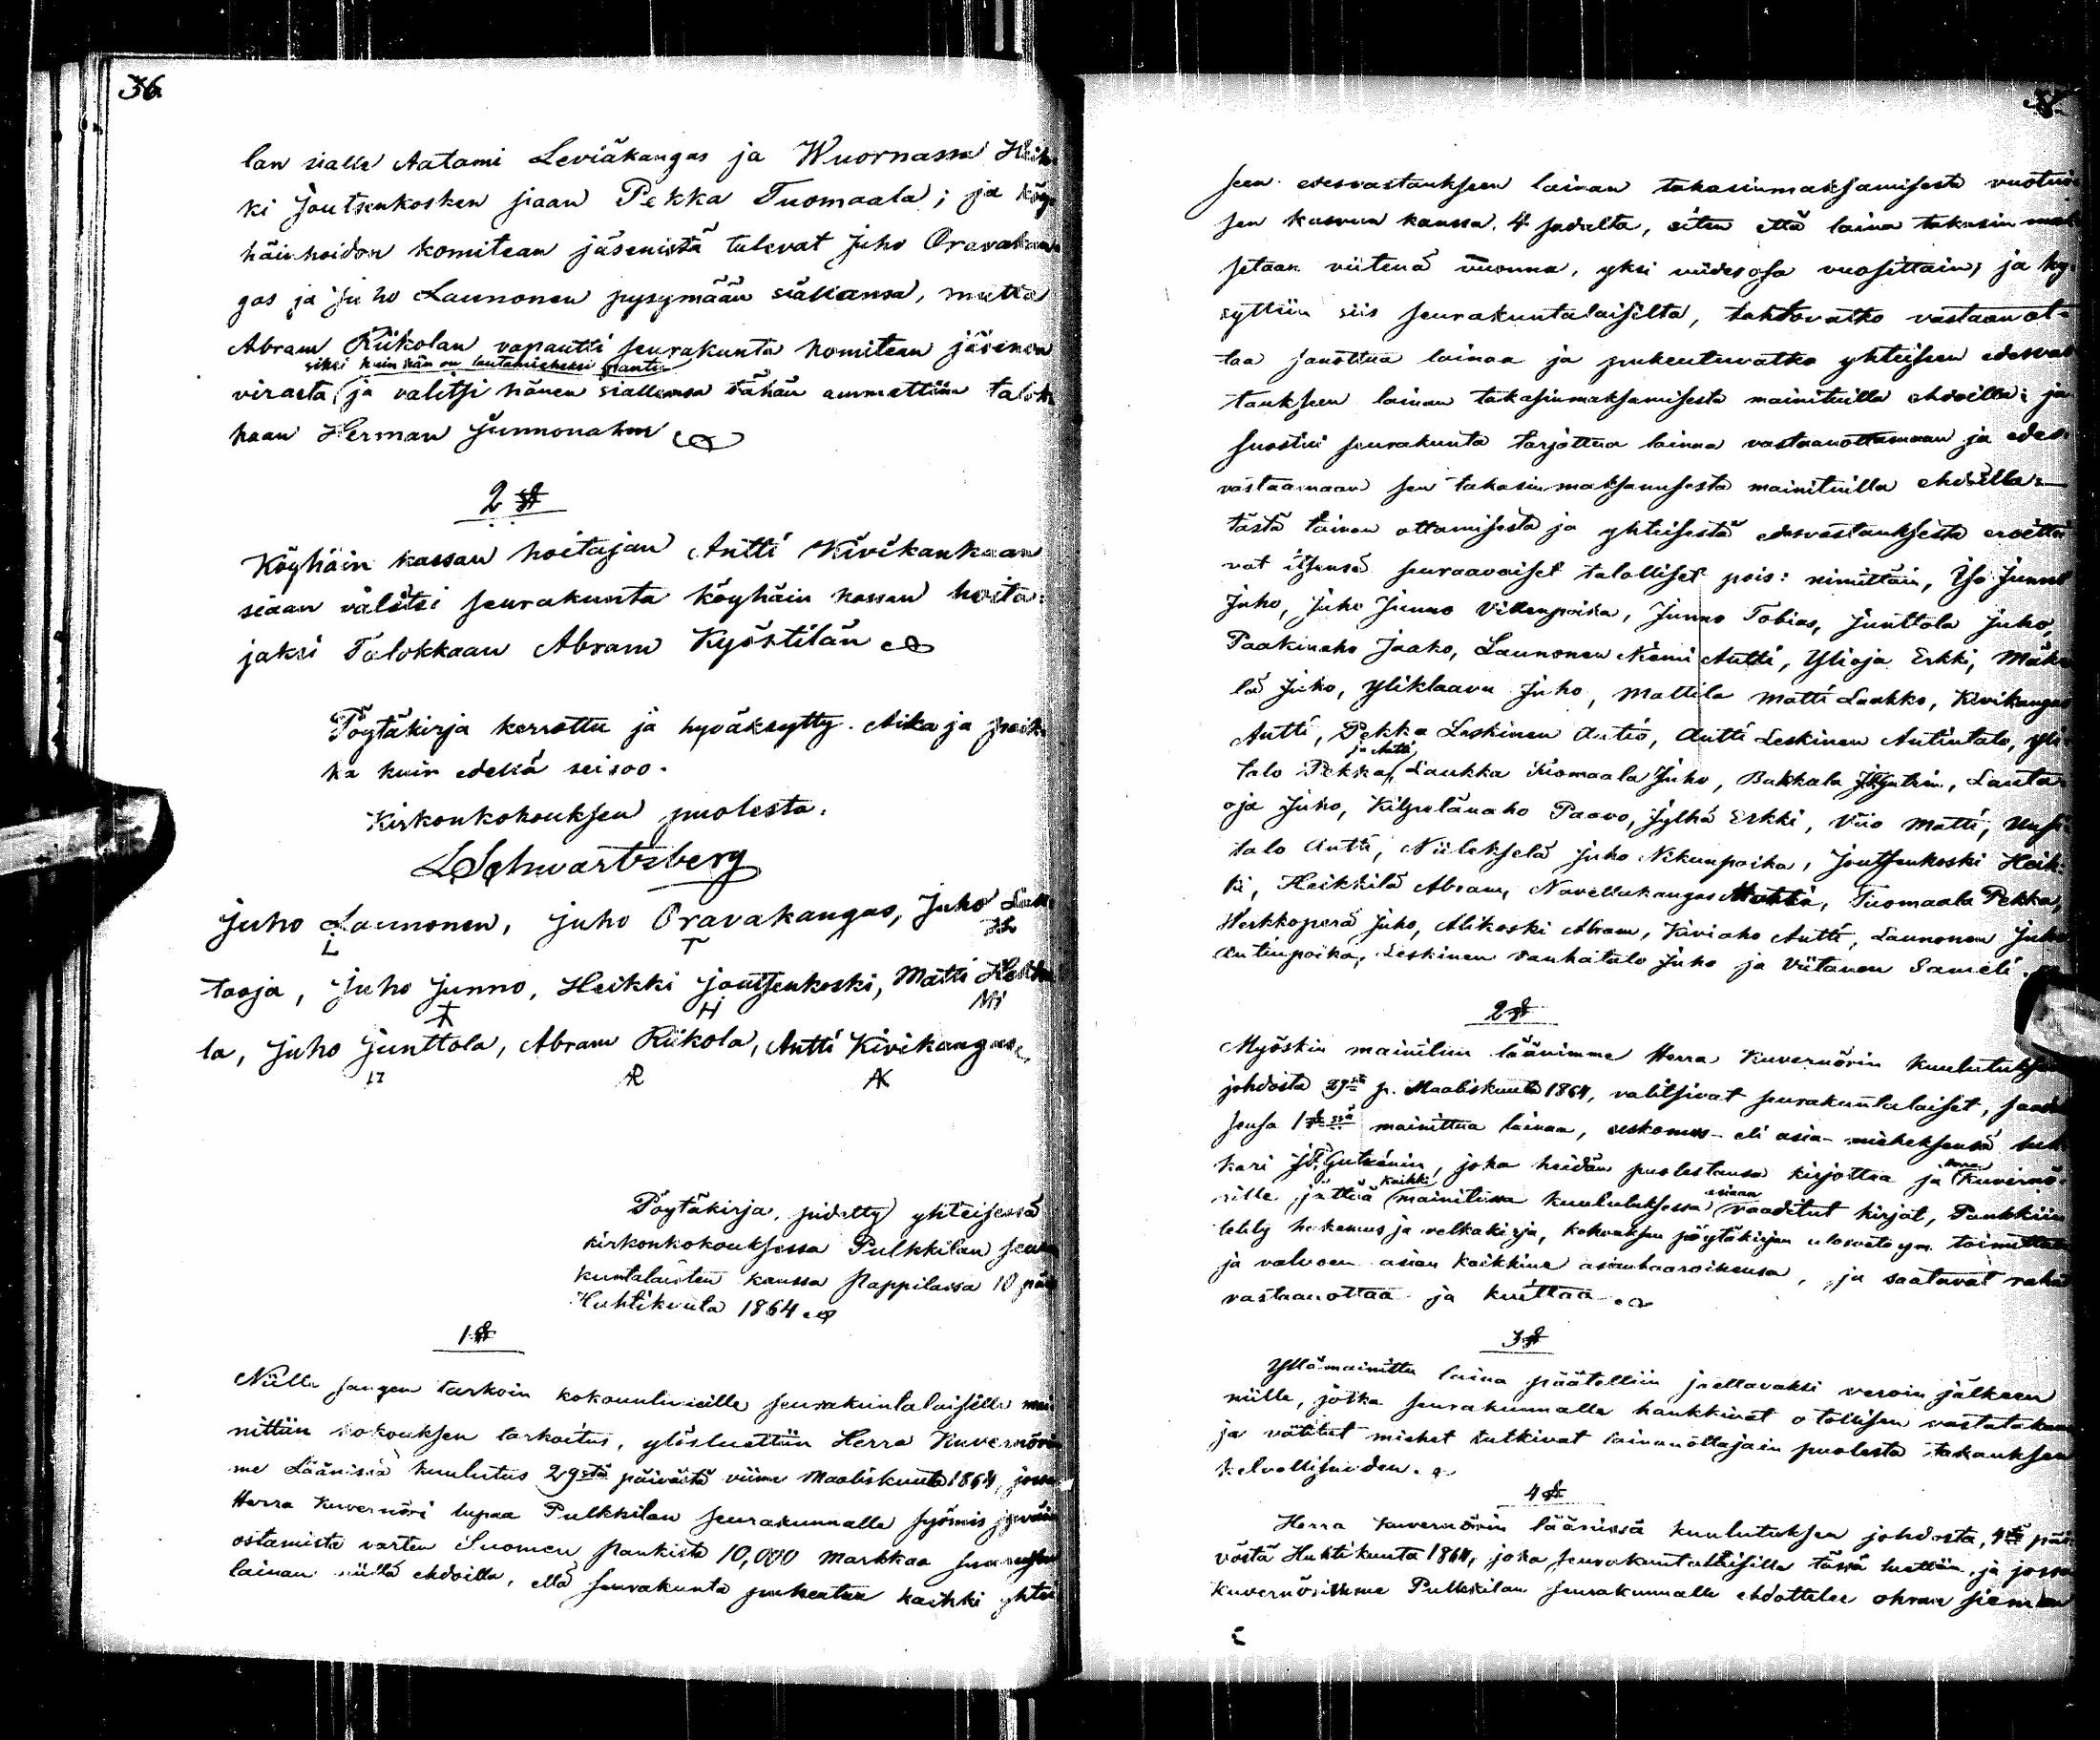 36
lan sialle Aatami Leviäkangas ja Wuornassa Heik-
ki Joutsenkosken siaan Pekka Tuomaala; ja köy-
häinhoidon komitean jäsenistä tulevat Juho Oravakan-
gas ja Juho Launonen pysymään siallansa, mutta
Abram Riikolan vapautti seurakunta komitean jäsenen
siksi kuin hän on lautamieheksi
virasta, ja valitsi hänen siallensa tähän ammattiin talok-
kaan Herman Junnonahon
2 §
Köyhäin kassan hoitajan Antti Kivikankaan
siaan valitsi seurakunta köyhäin kassan hoita-
jaksi Talokkaan Abram Kyöstilän
Pöytäkirja kerrottu ja hyväksytty. Aika ja paik-
ka kuin edellä seisoo.
Kirkonkokouksen puolesta.
LSchwartzberg
Juho Launonen, Juho Oravakangas, Juho Lau-
L T JL
taoja, Juho Junno, Heikki Joutsenkoski, Matti Heikki-
H MH
la, Juho Junttola, Abram Riikola, Antti Kivikangas
AR AK
Pöytäkirja, pidetty yhteisessä
kirkonkokouksessa Pulkkilan seura-
kuntalaisten kanssa Pappilassa 10 päi
Huhtikuuta 1864
1 §
Niille sangen tarkoin kokountuneille seurakuntalaisille mai-
nittiin kokouksen tarkoitus, ylösluettiin Herra Kuvernörim-
me Läänissä kuulutus 29stä päivästä viime Maaliskuuta 1864, jossa
Herra Kuvernöri lupaa Pulkkilan seurakunnalle syömis jyväin
ostamista varten Suomen Pankista 10,000 Markkaa
lainan niillä ehdoilla, että seurakunta puhentuu kaikki yhtei-
37.
seen edesvastaukseen lainan takasinmaksamisesta vuotui-
sen kasvun kanssa, 4 sadalta, siten että laina takasin mak-
setaan viitenä vuonna, yksi viidesosa vuosittain; ja ky-
syttiin siis seurakuntalaisilta, tahtovatko vastaanot-
taa sanottua lainaa ja puhentuvatko yhteiseen edesvas-
taukseen lainan takasinmaksamisesta mainituilla ehdoilla; ja
suostui seurakunta tarjottua lainaa vastaanottamaan ja edes-
vastaamaan sen takasinmaksamisesta mainituilla ehdoilla:
tästä lainan ottamisesta ja yhteisestä edesvastauksesta eroitti-
vat itsensä seuraavaiset talolliset pois: nimittäin, Iso Junno
Juho, Juho Junno Villenpoika, Junno Tobias, Junttola Juho,
Paakinaho Jaako, Launonen Niemi Antti, Ylioja Erkki, Mäke-
lä Juho, Yliklaavu Juho, Mattila Matti Laukko, Kivikangas
Antti, Pekka Leskinen Autio, Antti Leskinen Antintalo, Yli-
ja Antti
talo Pekka, Laukka Tuomaala Juho, Bakkala, Lauta-
oja Juho, Kilpelänaho Paavo, Jylhä Erkki, Viio Matti, Uusi-
talo Antti, Niileksela Juho Nikunpoika, Joutsenkoski Heik-
ki, Heikkilä Abram, Navettakangas Matti, Tuomaala Pekka,
Werkkoperä Juho, Alikoski Abram, Kiviaho Antti, Launonen Juho
Antinpoika, Leskinen Vanhatalo Juho ja Viitanen Sameli.
2 §
Myöskin mainitun läänimme Herra Kuvernörin kuulutuksen
johdosta 29stä p. Maaliskuuta 1864, valitsivat seurakuntalaiset, saada
sensa 1§ssä mainittua lainaa, uskomus- eli asia-mieheksensä
kari Gutzénin, joka heidän puolestansa kirjoittaa ja Herra Kuvernö-
rille jättää kaikki mainitussa kuulutuksessa asiaan vaaditut kirjat, Pankkiin
hakemus ja velkakirja, kokouksen pöytäkirjan ulosveto ym. toimittaa
ja valvoen asian kaikkine asianhaaroinensa, ja saatavat rahat
vastaanottaa ja kuittaa.
3 §
Yllämainittu laina päätettiin jaettavaksi veroin jälkeen
niille, jotka seurakunnalle hankkivat otollisen vastatakauk
ja valitut miehet tutkivat lainanottajain puolesta takauksen
kelvollisuuden.
4 §
Herra Kuvernörin läänissä kuulutuksen johdosta, 4stä päi-
västä Huhtikuuta 1864, joka seurakuntalaisille tässä luettiin, ja jossa
Kuvernörimme Pulkkilan seurakunnalle ehdottelee ohran siemen